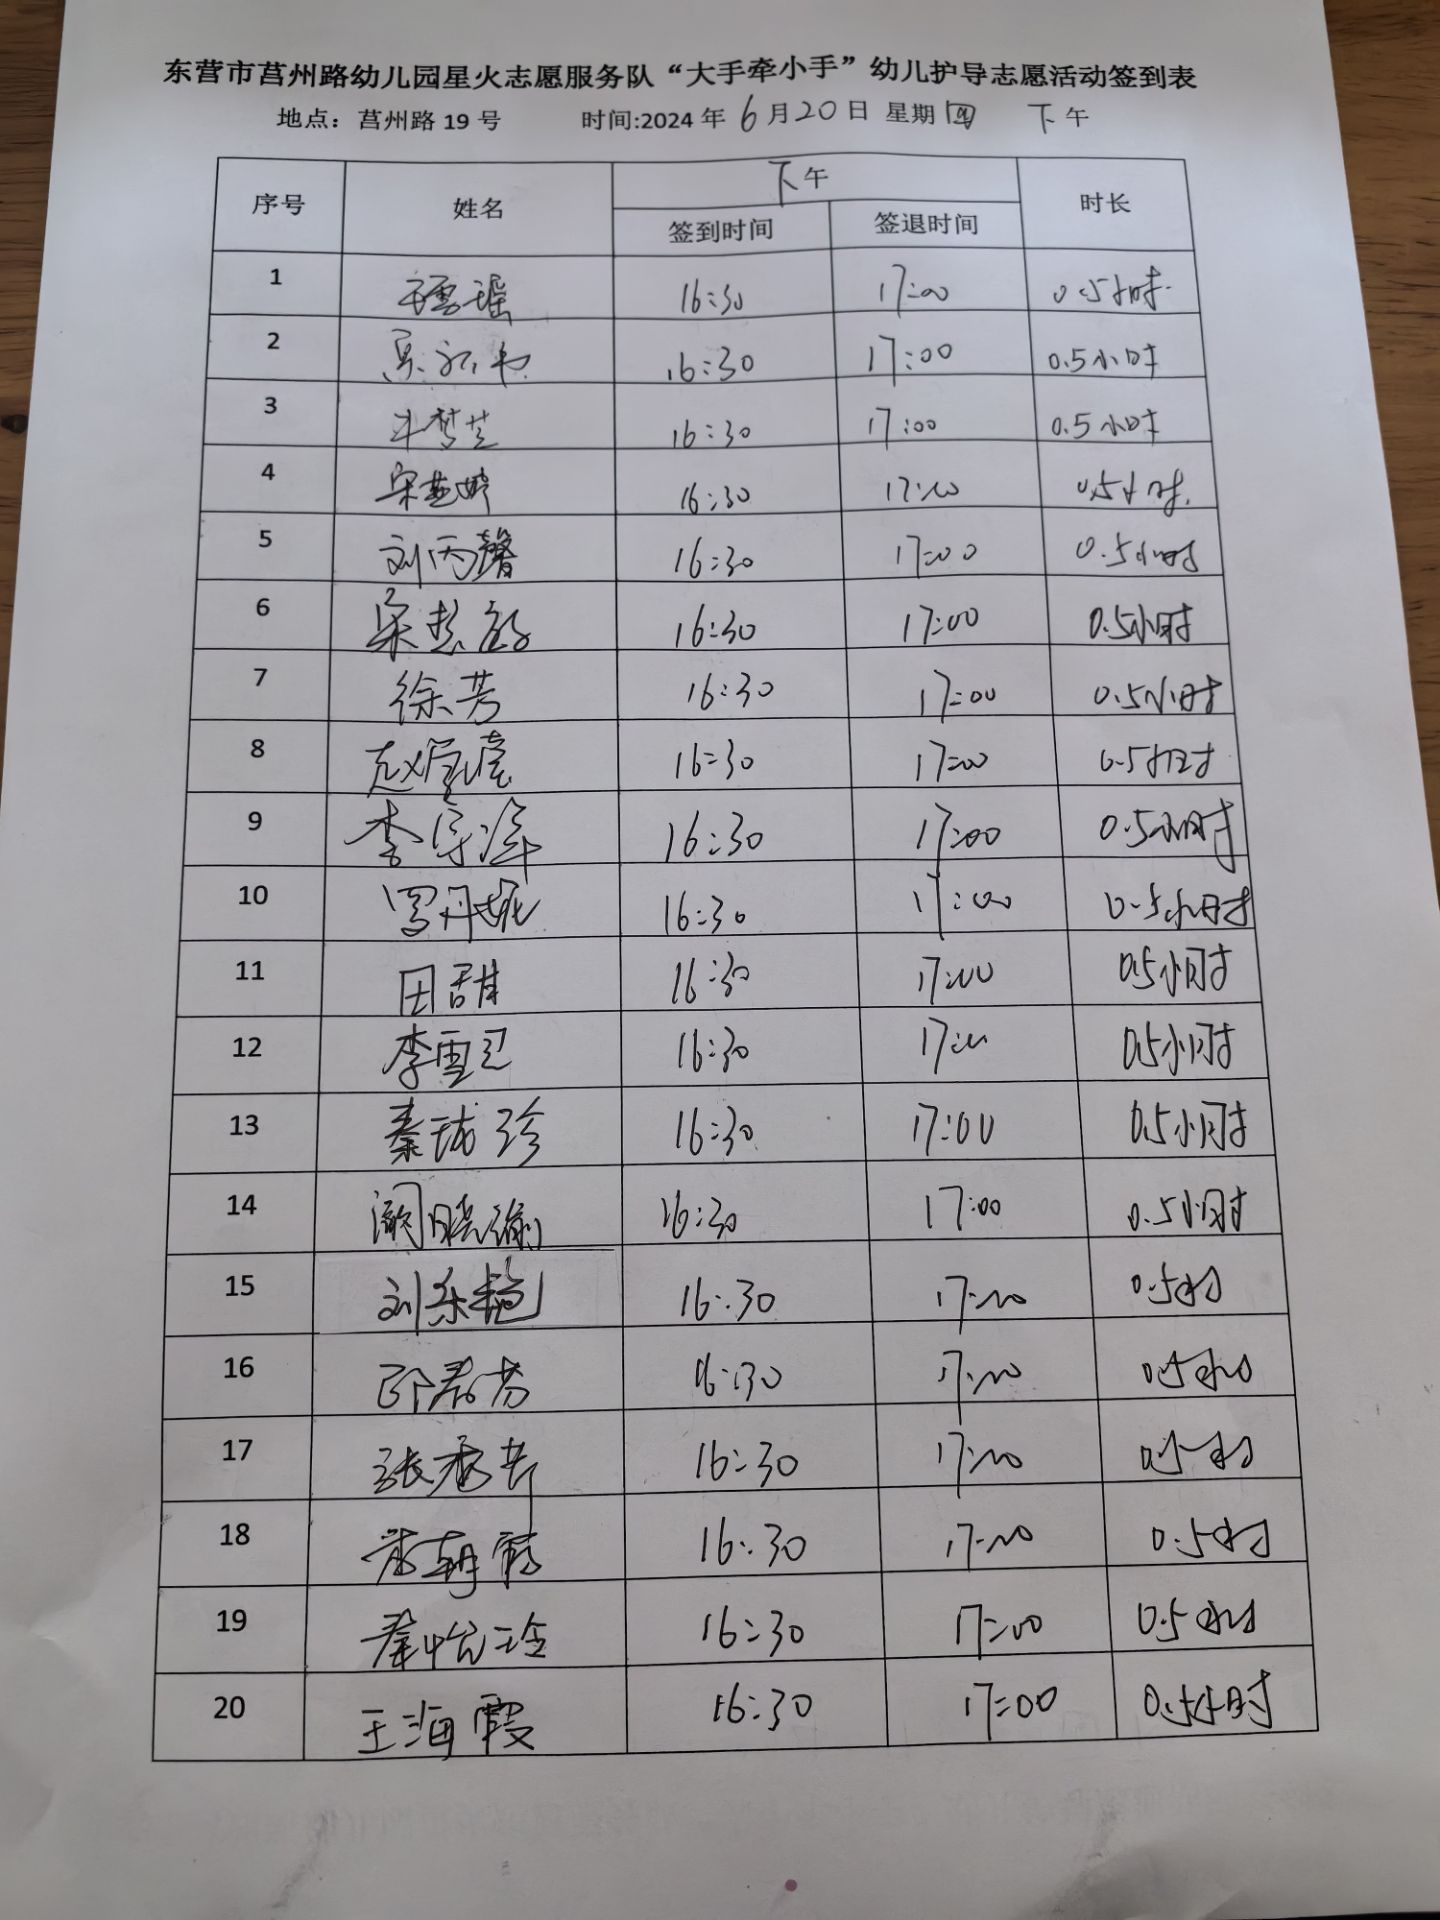 东营市莒州路幼儿园星火志愿服务队“大手牵小手”幼儿护导志愿活动签到表
地点：莒州路 19 号 时间:2024 年 6 月 20 日 星期 四 下 午
序号 姓名 下 午 时长
签到时间 签退时间
1 16:30 17:00 0.5小时
2 16:30 17:00 0.5小时
3 16:30 17:00 0.5小时
4 16:30 17:00 0.5小时
5 刘丙馨 16:30 17:00 0.5小时
6 16:30 17:00 0.5小时
7 徐芳 16:30 17:00 0.5小时
8 16:30 17:00 0.5小时
9 16:30 17:00 0.5小时
10 罗丹妮 16:30 17:00 0.5小时
11 田甜 16:30 17:00 0.5小时
12 16:30 17:00 0.5小时
13 16:30 17:00 0.5小时
14 16:30 17:00 0.5小时
15 刘东艳 16:30 17:00 0.5小时
16 16:30 17:00 0.5小时
17 16:30 17:00 0.5小时
18 16:30 17:00 0.5小时
19 16:30 17:00 0.5小时
20 王海霞 16:30 17:00 0.5小时